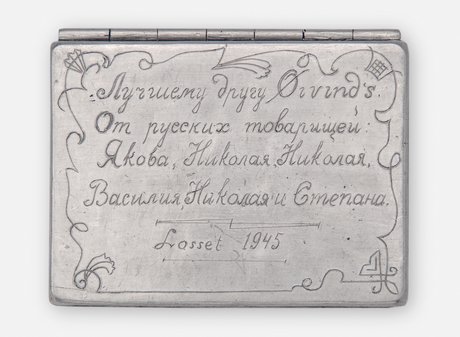 Лучшему другу Øivind's.
От русских товарищей:
Якова, Николая, Николая,
Василия, Николая и Степана.
Losset 1945